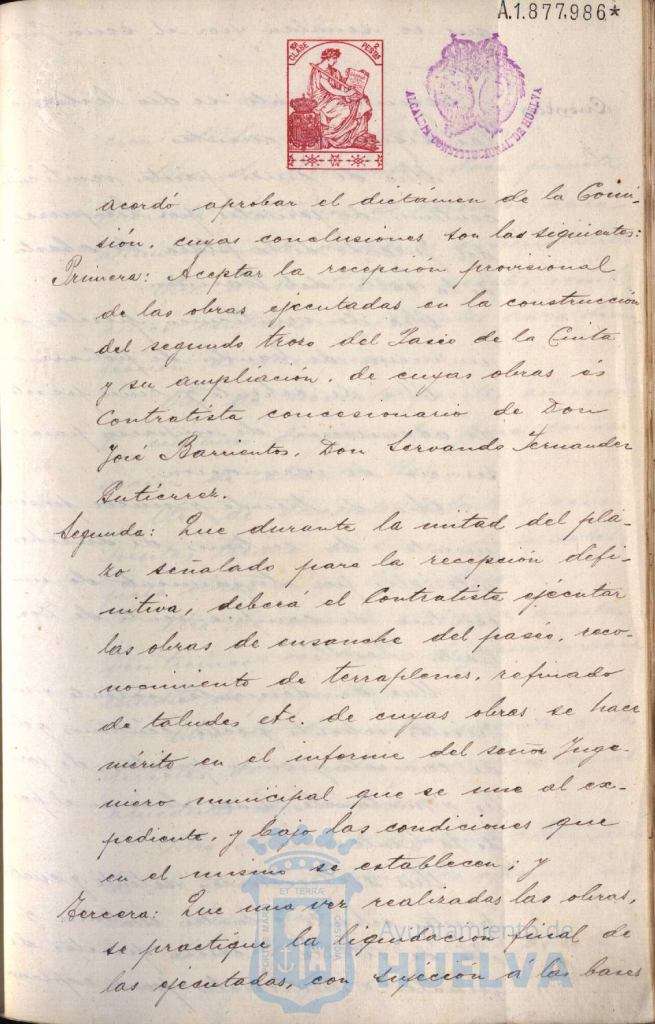 A.1.877.986*
1ª CLASE 2 PESTAS
ALCALDIA CONSTITUCIONAL DE HUELVA
acordó aprobar el dictámen de la Comi-
sión, cuyas conclusiones son las siguientes:
Primera: Aceptar la recepción provisional
de las obras ejecutadas en la construcción
del segundo trozo del Paseo de la Cinta
y su ampliación, de cuyas obras és
Contratista concesionario de Don
José Barrientos, Don Servando Fernandez
Gutiérrez.
Segunda: Que durante la mitad del pla-
zo señalado para la recepción defi-
nitiva, deberá el Contratista ejécutar
las obras de ensanche del paseo, reco-
nocimiento de terraplenes, refinado
de taludes etc. de cuyas obras se hace
mérito en el informe del señor Inge-
niero municipal que se une al ex-
pediente, y bajo las condiciones que
en el mismo se establecen; y
Tercera: Que una vez realizadas las obras,
se practique la liquidación final de
las ejecutadas, con sujeción á las bases
PORTUS MARIS ET TERRÆ CUSTODIA
Ayuntamiento de
HUELVA